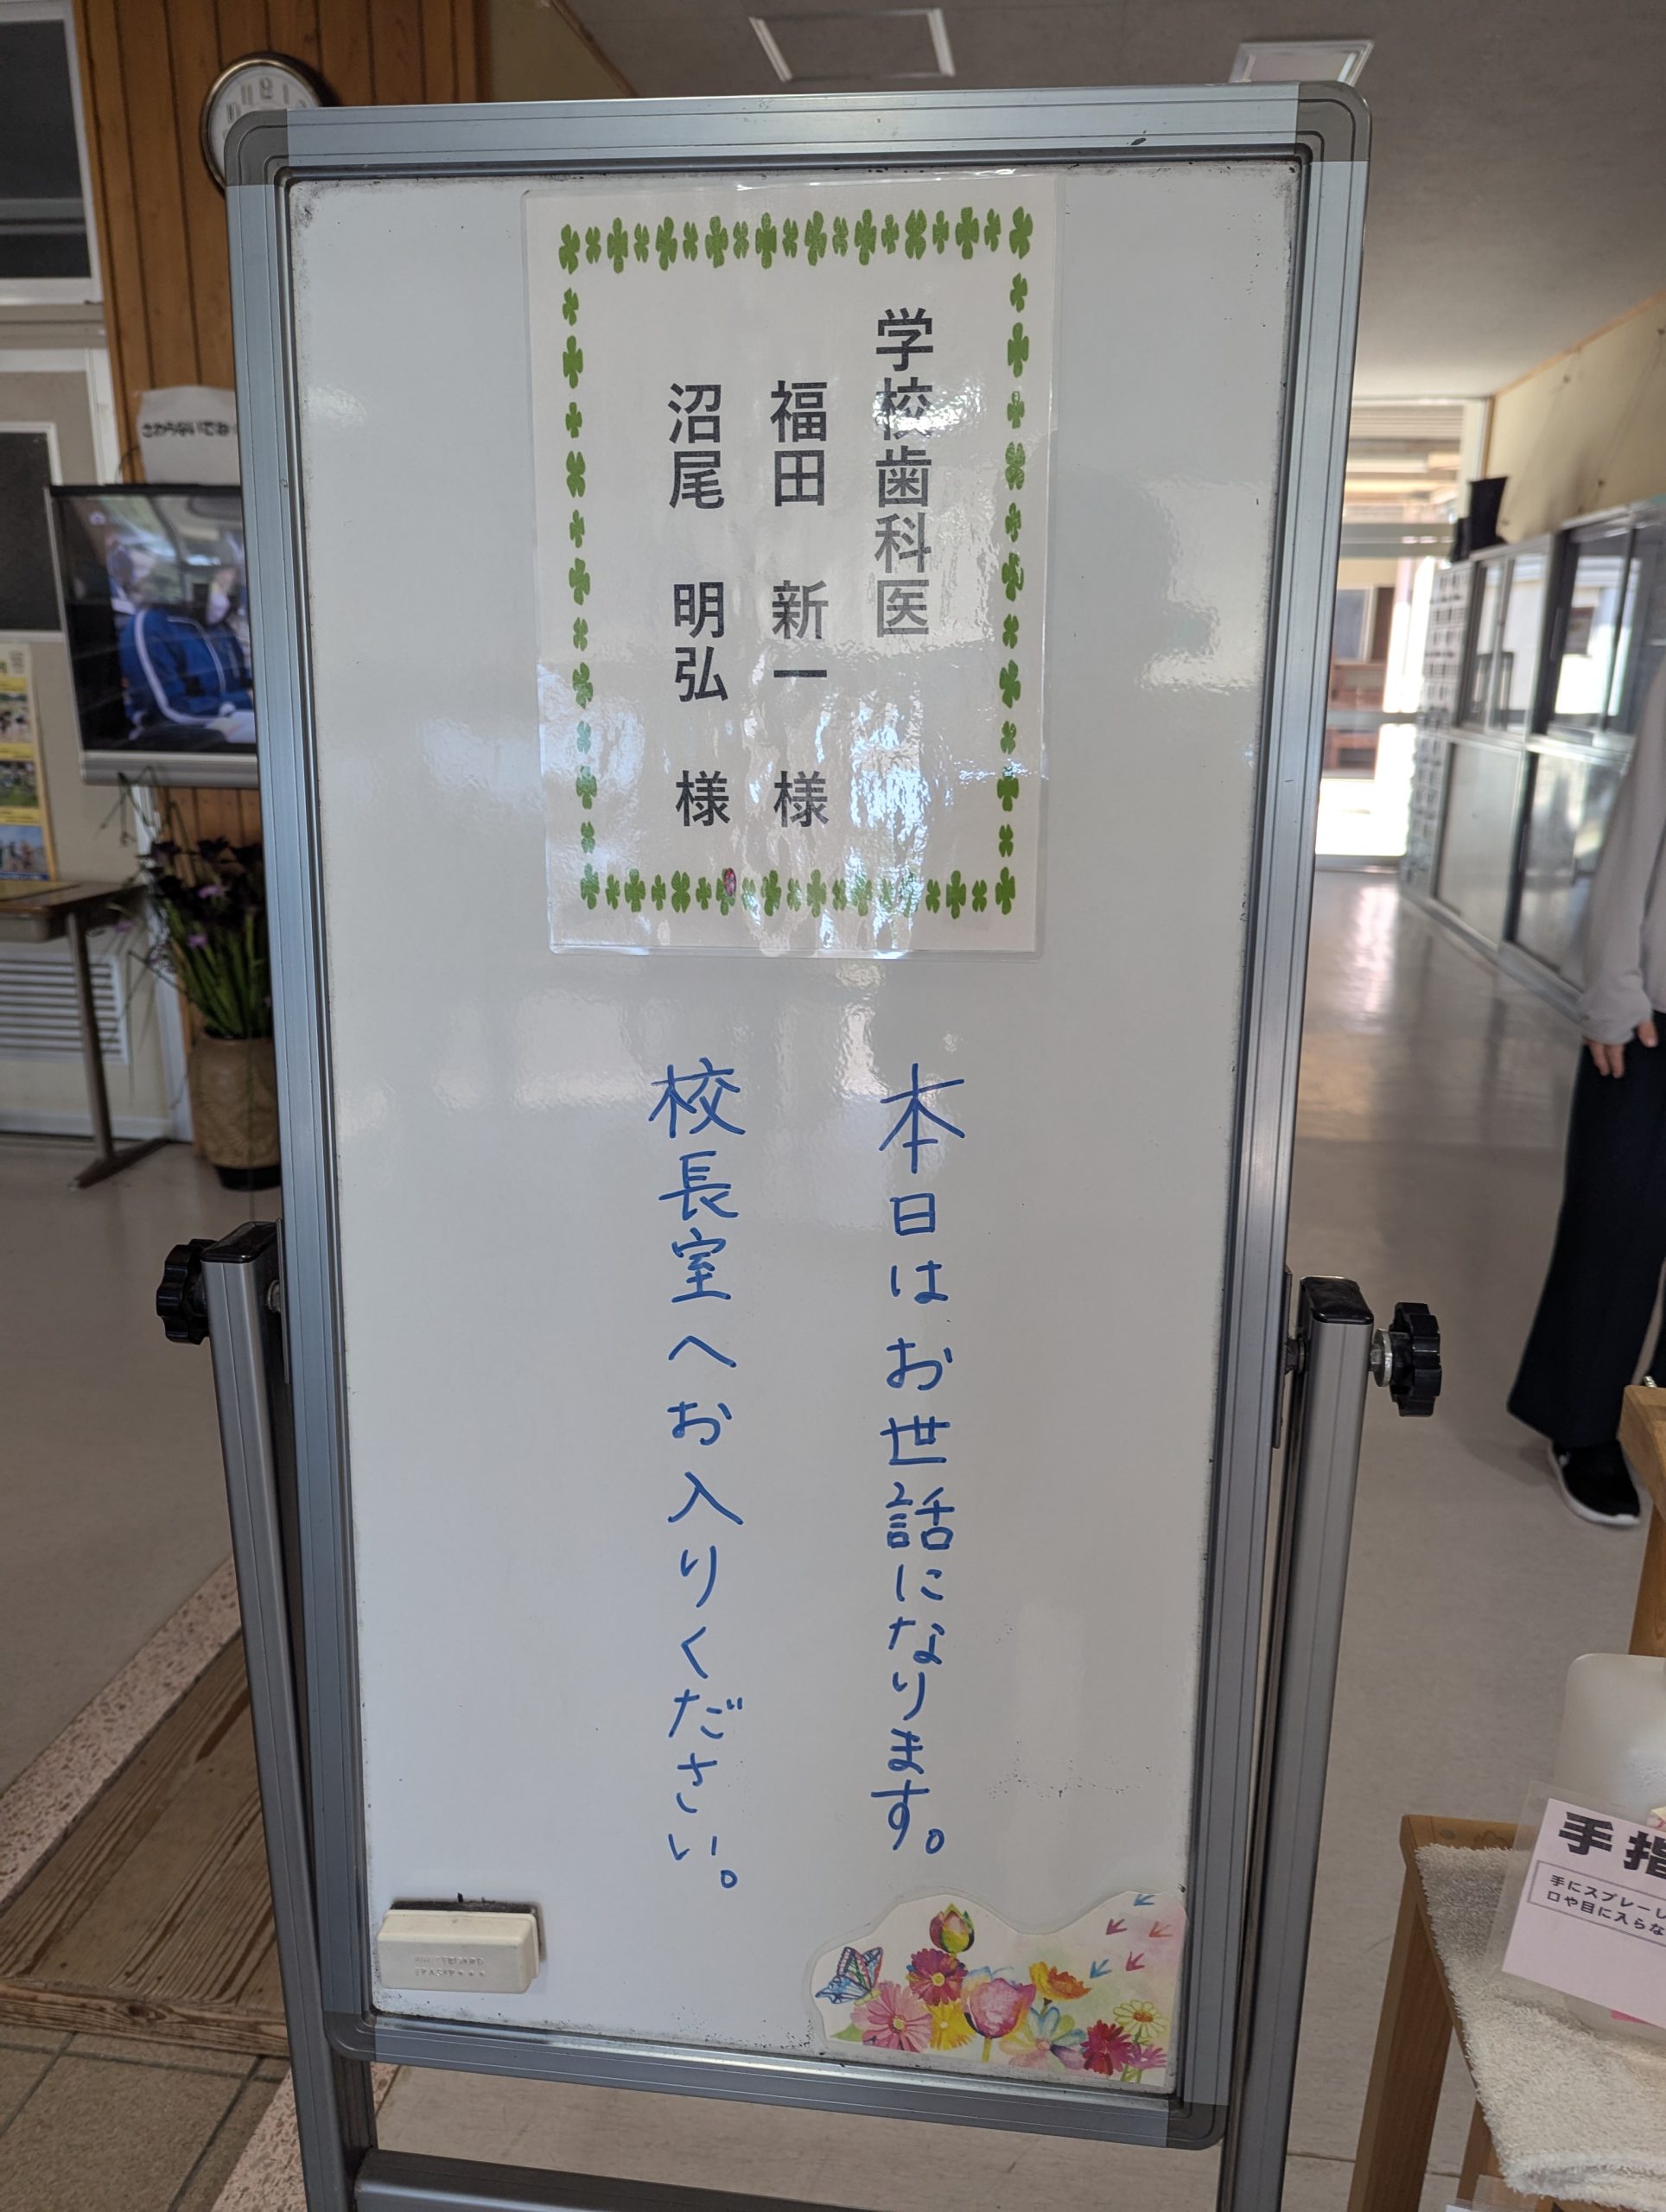 学校歯科医
福田 新一 様
沼尾 明弘 様
本日はお世話になります。
校長室へお入りください。
手指
手にスプレーし
口や目に入らな